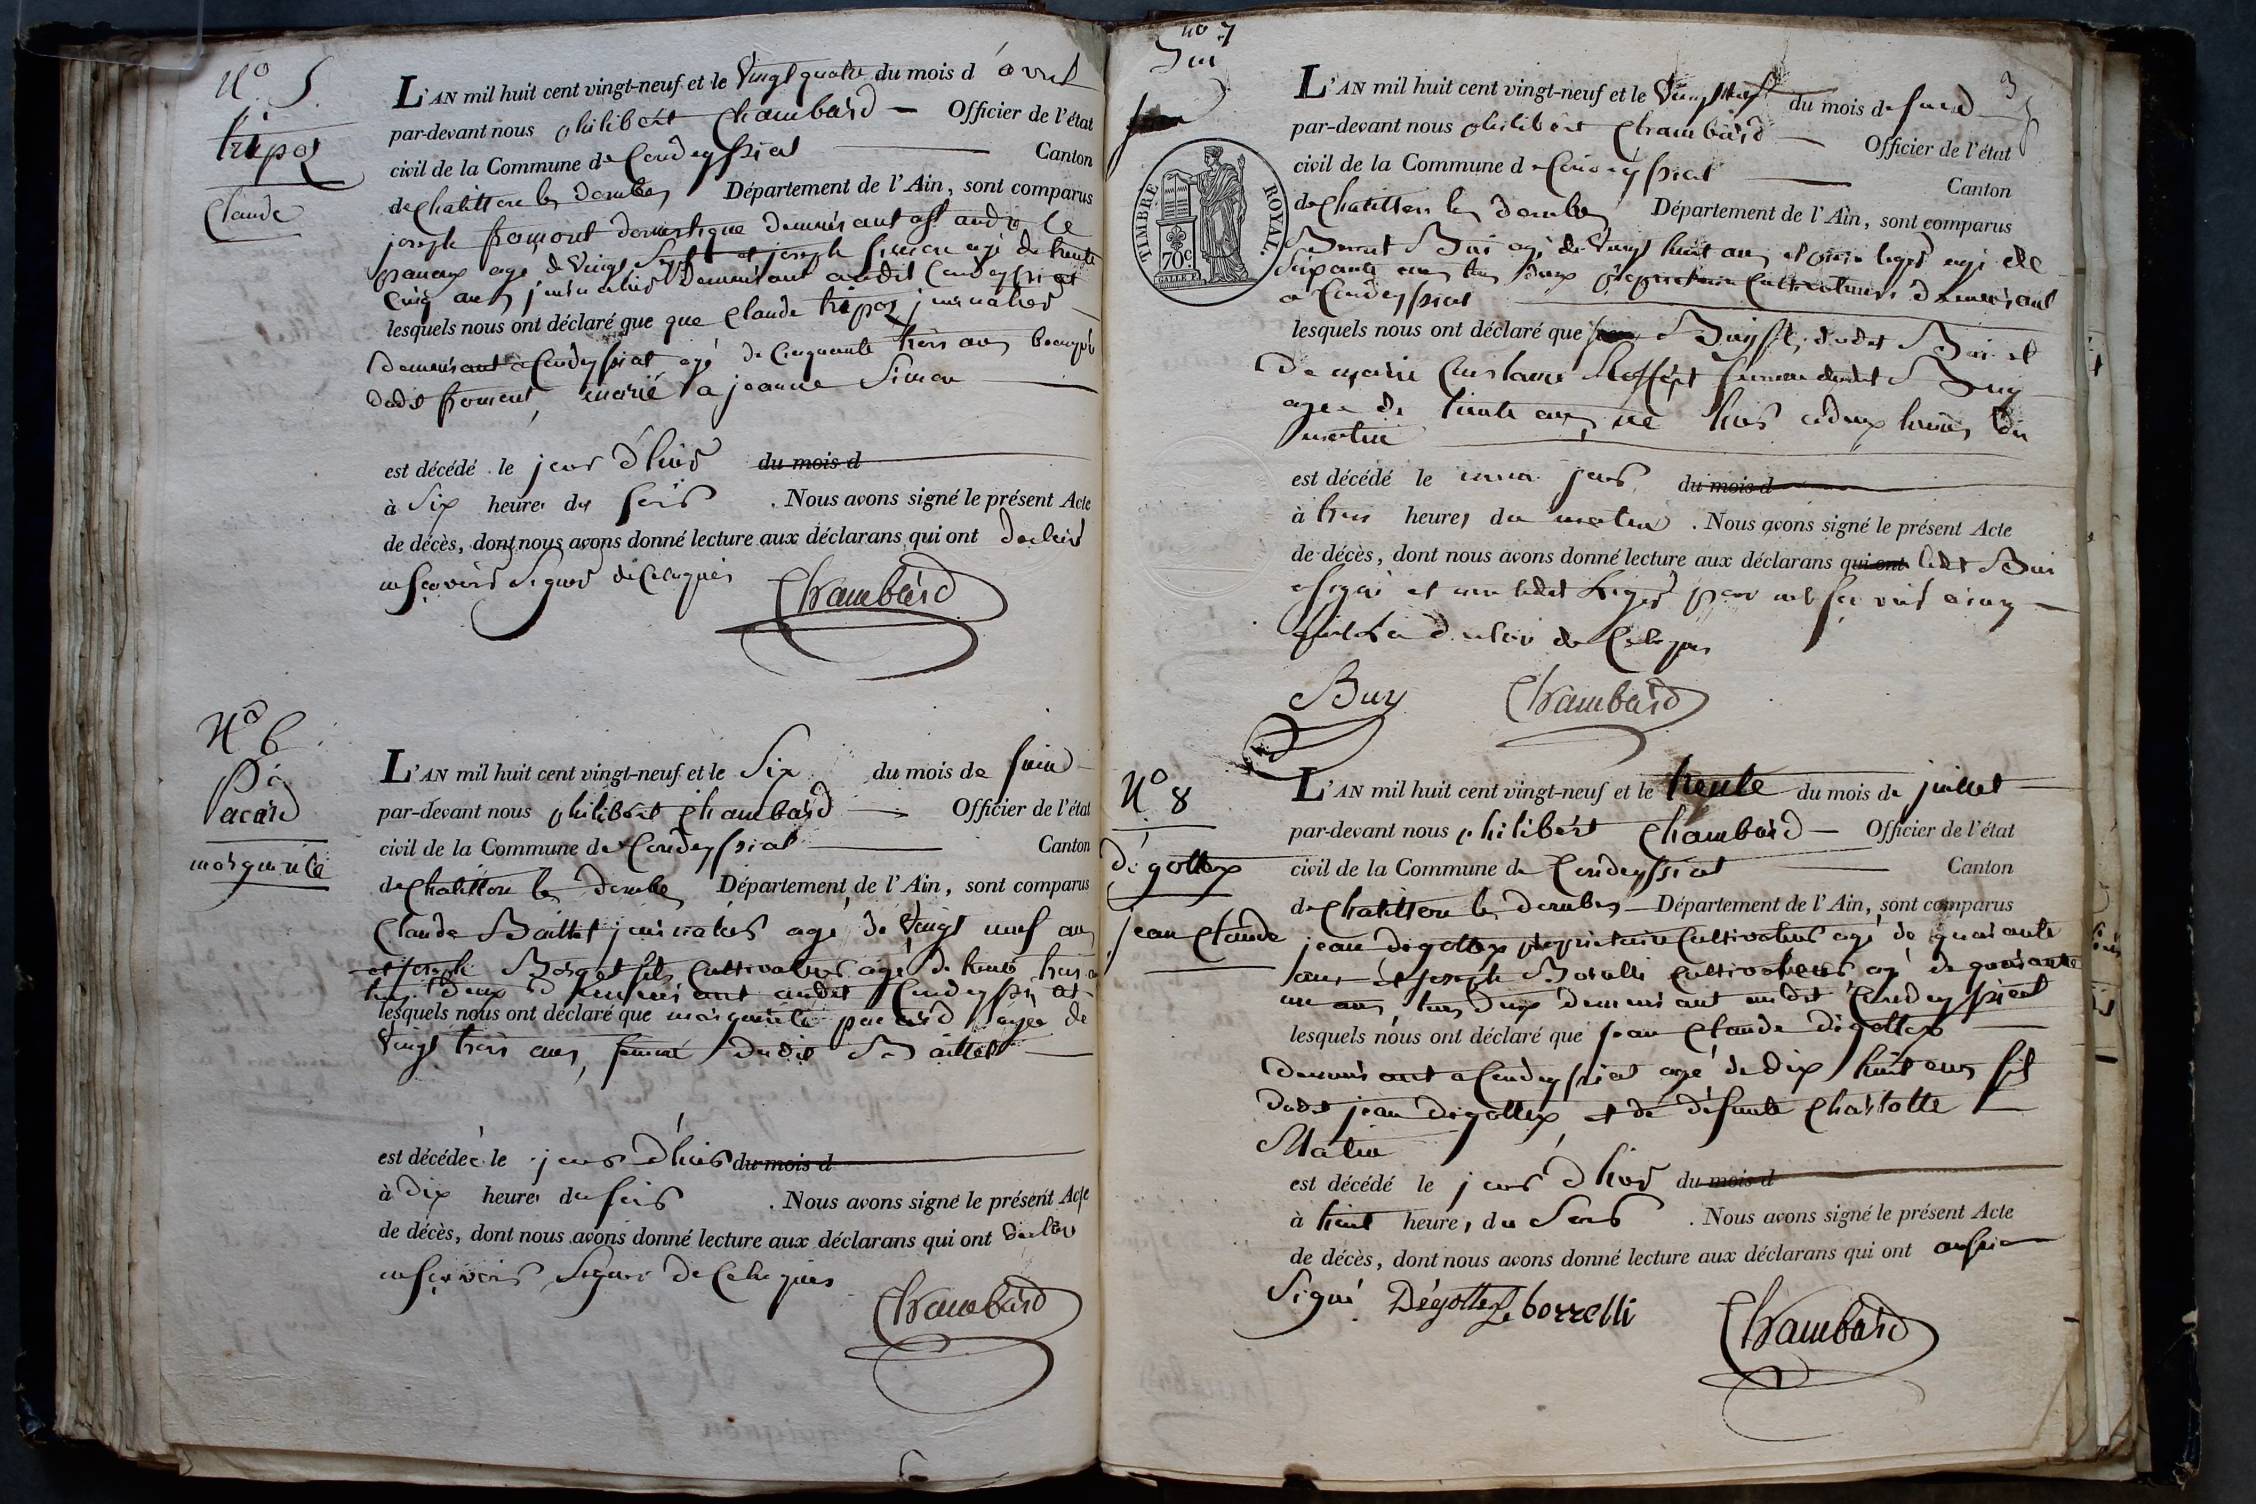 N° 5.
tripoz
Claude
L'AN mil huit cent vingt-neuf et le vingt quatre du mois d'avril
par-devant nous philibert Chambard — Officier de l'état
civil de la Commune de Condeyssiat Canton
de Chatillon les dombes Département de l'Ain, sont comparus
joseph fromont domestique demeurant a st andré le
panoux agé de vingt sept et joseph simon agé de trente
cinq ans journalier demeurant audit Condeyssiat
lesquels nous ont déclaré que que Claude tripoz journalier
demeurant a Condeyssiat agé de cinquante trois ans beaupère
dudit froment, marié a jeanne Simon
est décédé le jour d'hier du mois d
à six heures du soir . Nous avons signé le présent Acte
de décès, dont nous avons donné lecture aux déclarans qui ont déclaré
ne sçavoir signer de ce requis
Chambard
N° 6
Pacard
marguerite
L'AN mil huit cent vingt-neuf et le Six du mois de juin
par-devant nous philibert Chambard — Officier de l'état
civil de la Commune de Condeyssiat Canton
de Chatillon les dombes Département de l'Ain, sont comparus
Claude Baillet journalier agé de vingt neuf ans
et joseph Borget fils cultivateur agé de trente trois
tous deux demeurant audit Condeyssiat
lesquels nous ont déclaré que marguerite pacard agée de
vingt trois ans, femme dudit Baillet
est décédée le jour d'hier du mois d
à dix heures du soir . Nous avons signé le présent Acte
de décès, dont nous avons donné lecture aux déclarans qui ont déclaré
ne sçavoir signer de ce requis
Chambard
no 7
3
TIMBRE ROYAL.
70c
L'AN mil huit cent vingt-neuf et le vingt neuf du mois de juin
par-devant nous philibert Chambard Officier de l'état
civil de la Commune de Condeyssiat Canton
de Chatillon les dombes Département de l'Ain, sont comparus
Benoit Bui agé de vingt huit ans et léger agé de
soixante ans tous deux propriétaire cultivateurs demeurant
a Condeyssiat
lesquels nous ont déclaré que Buy fils dudit Bui et
de marie Constance femme dudit Buy
agée de trente ans, né hier a deux heures du
matin
est décédé le même jour du mois d
à trois heures du matin . Nous avons signé le présent Acte
de décès, dont nous avons donné lecture aux déclarans qui ont ledit Bui
a signé et non ledit Léger pour ne sçavoir
de ce requis
Buy Chambard
N° 8
dégottex
jean Claude
L'AN mil huit cent vingt-neuf et le trente du mois de juillet
par-devant nous philibert Chambard — Officier de l'état
civil de la Commune de Condeyssiat Canton
de Chatillon les dombes — Département de l'Ain, sont comparus
jean dégottex propriétaire cultivateur agé de quarante
ans et joseph Borelli cultivateur agé de quarante
un ans, tous deux demeurant audit Condeyssiat
lesquels nous ont déclaré que jean Claude dégottex
demeurant a Condeyssiat agé de dix huit ans fils
dudit jean dégottex et de défunte Charlotte
Matin
est décédé le jour d'hier du mois d
à huit heures du soir . Nous avons signé le présent Acte
de décès, dont nous avons donné lecture aux déclarans qui ont aussi
signé Dégottex borrelli
Chambard